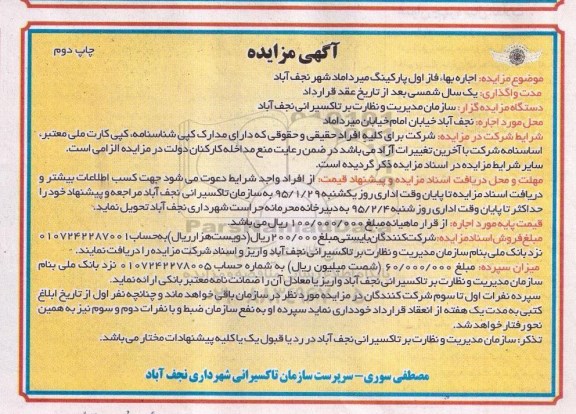 آگهی مزایده
چاپ دوم
موضوع مزایده: اجاره بهاء فاز اول پارکینگ میرداماد شهر نجف آباد
مدت واگذاری: یک سال شمسی بعد از تاریخ عقد قرارداد
دستگاه مزایده گزار: سازمان مدیریت و نظارت بر تاکسیرانی نجف آباد
محل مورد اجاره: نجف آباد خیابان امام خیابان میرداماد
شرایط شرکت در مزایده: شرکت برای کلیه افراد حقیقی و حقوقی که دارای مدارک کپی شناسنامه، کپی کارت ملی معتبر،
اساسنامه شرکت با آخرین تغییرات آزاد می باشد در ضمن رعایت منع مداخله کارکنان دولت در مزایده الزامی است.
سایر شرایط مزایده در اسناد مزایده ذکر گردیده است.
مهلت و محل دریافت اسناد مزایده و پیشنهاد قیمت: از افراد واجد شرایط دعوت می شود جهت کسب اطلاعات بیشتر و
دریافت اسناد مزایده تا پایان وقت اداری روز یکشنبه ۹۵/۱/۲۹ به سازمان تاکسیرانی نجف آباد مراجعه و پیشنهاد خود را
حداکثر تا پایان وقت اداری روز شنبه ۹۵/۲/۴ به دبیرخانه محرمانه حراست شهرداری نجف آباد تحویل نماید.
قیمت پایه مورد اجاره: از قرار ماهیانه مبلغ ۱۰۰/۰۰۰/۰۰۰ ریال می باشد.
مبلغ فروش اسناد مزایده: شرکت کنندگان بایستی مبلغ ۲۰۰/۰۰۰ ریال (دویست هزار ریال) به حساب ۰۱۰۷۲۴۲۲۸۷۰۰۱
نزد بانک ملی بنام سازمان مدیریت و نظارت بر تاکسیرانی نجف آباد واریز و اسناد شرکت مزایده را دریافت نمایند.
میزان سپرده: مبلغ ۶۰/۰۰۰/۰۰۰ (شصت میلیون ریال) به شماره حساب ۰۱۰۷۲۴۲۲۷۸۰۰۵ نزد بانک ملی بنام
سازمان مدیریت و نظارت بر تاکسیرانی نجف آباد واریز یا معادل آن را ضمانت نامه معتبر بانکی ارائه نماید.
سپرده نفرات اول تا سوم شرکت کنندگان در مزایده مورد نظر در سازمان باقی خواهد ماند و چنانچه نفر اول از تاریخ ابلاغ
کتبی به مدت یک هفته از انعقاد قرارداد خودداری نماید سپرده او به نفع سازمان ضبط و با نفرات دوم و سوم نیز به همین
نحو رفتار خواهد شد.
تذکر: سازمان مدیریت و نظارت بر تاکسیرانی نجف آباد در رد یا قبول یک یا کلیه پیشنهادات مختار می باشد.
مصطفی سوری - سرپرست سازمان تاکسیرانی شهرداری نجف آباد